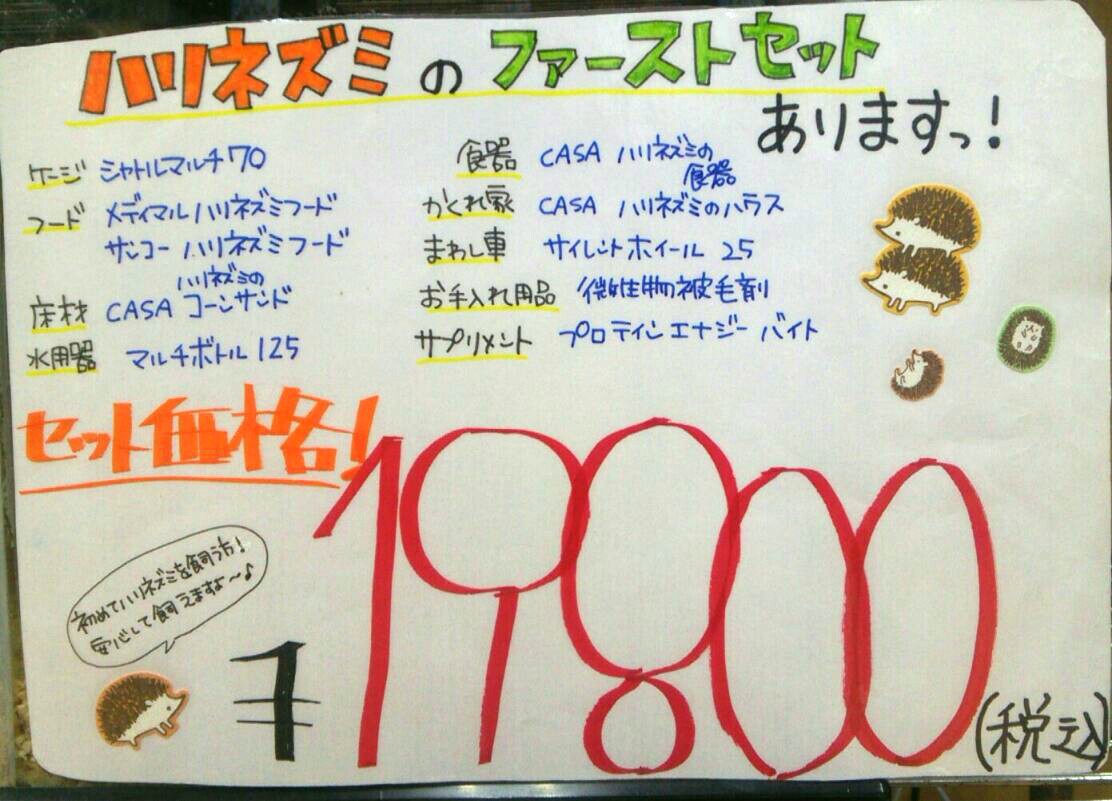 ハリネズミのファーストセット
ありますっ!
ケージ シャトルマルチ70
フード メディマルハリネズミフード
サンコーハリネズミフード
床材 CASA ハリネズミのコーンサンド
水用器 マルチボトル125
食器 CASA ハリネズミの食器
かくれ家 CASA ハリネズミのハウス
まわし車 サイレントホイール 25
お手入れ用品 微生物被毛剤
サプリメント プロテインエナジーバイト
セット価格!
初めてハリネズミを飼う方!
安心して飼えますな〜♪
¥19800
(税込)